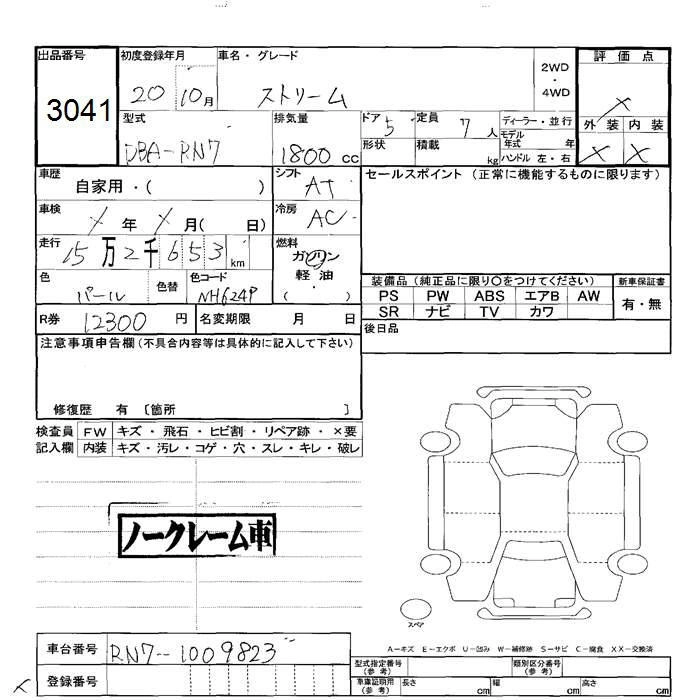 出品番号 初度登録年月 車名・グレード 評価点
3041 20 10月 ストリーム 2WD・4WD X
型式 排気量 ドア 5 定員 7人 ディーラー・並行 外装 内装
DBA-RN7 1800cc 形状 積載 kg モデル年式 年 X X
ハンドル 左・右
車歴 自家用・( ) シフト AT セールスポイント(正常に機能するものに限ります)
車検 X年 X月( 日) 冷房 AC
走行 15万2千653km 燃料 ガソリン・軽油・( )
色 パール 色替 色コード NH624P 装備品(純正品に限り○をつけてください) 新車保証書
PS PW ABS エアB AW 有・無
SR ナビ TV カワ
R券 12300円 名変期限 月 日 後日品
注意事項申告欄(不具合内容等は具体的に記入して下さい)
修復歴 有〔箇所 〕
検査員 FW キズ・飛石・ヒビ割・リペア跡・×要
記入欄 内装 キズ・汚レ・コゲ・穴・スレ・キレ・破レ
ノークレーム車
スペア
A-キズ E-エクボ U-凹み W-補修跡 S-サビ C-腐食 XX-交換済
車台番号 RN7-1009823 型式指定番号(参考) 類別区分番号(参考)
X 登録番号 車庫証明用(参考) 長さ cm 幅 cm 高さ cm